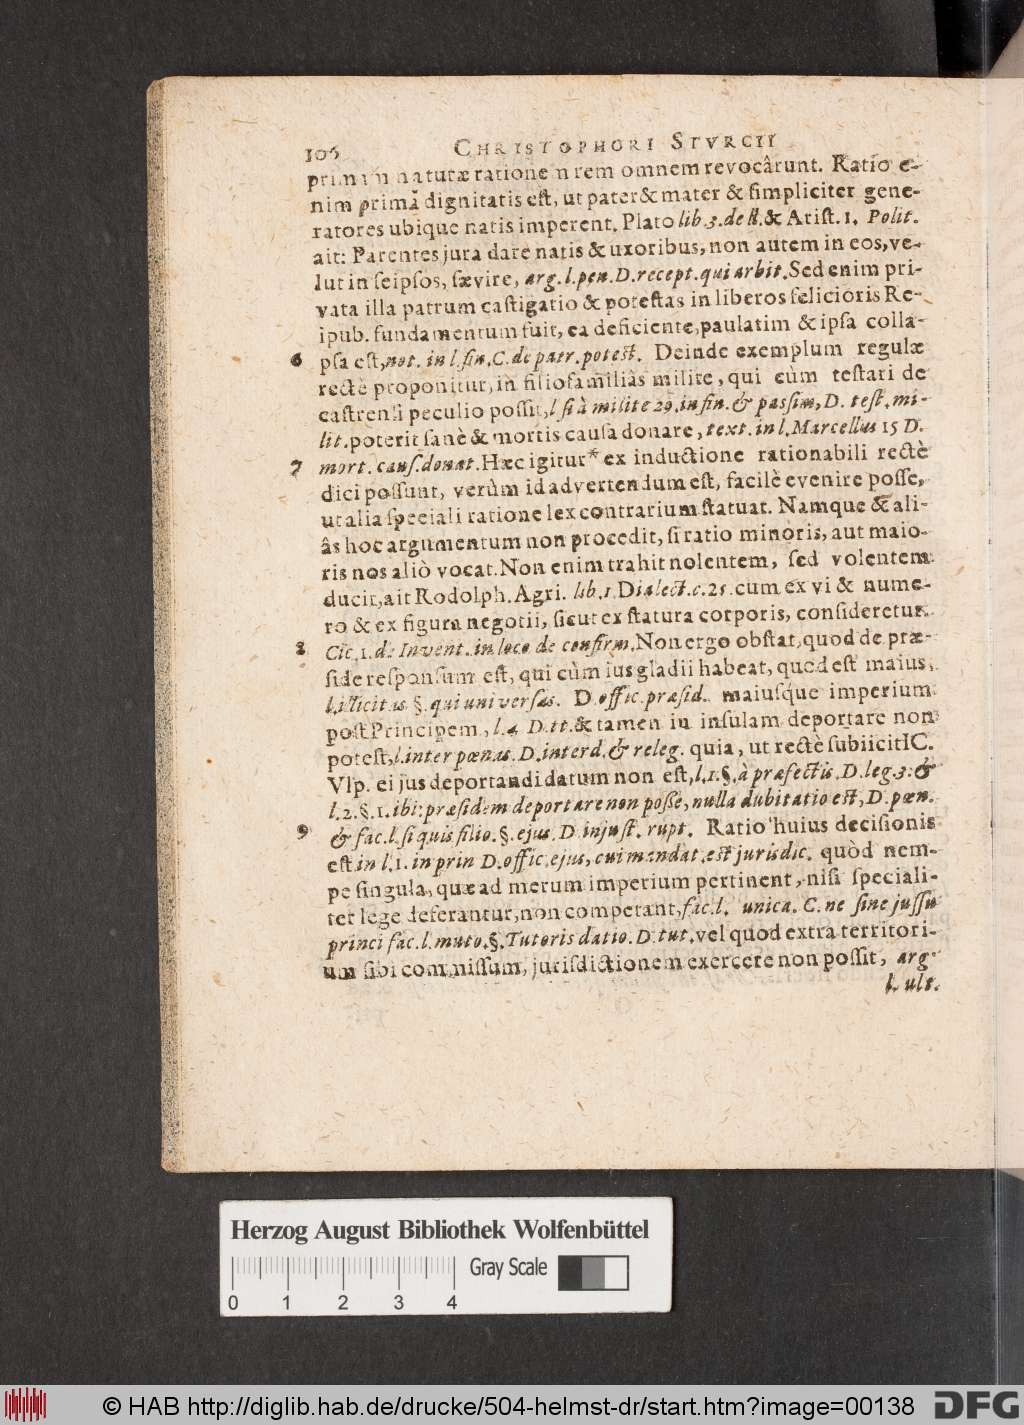 106 CHRISTOPHORI STVRCII
primùm naturæ rationem rem omnem revocârunt. Ratio e-
nim primã dignitatis est, ut pater & mater & simpliciter gene-
ratores ubique natis imperent. Plato lib. 3. de ll. & Arist. 1. Polit.
ait: Parentes jura dare natis & uxoribus, non autem in eos, ve-
lut in seipsos, sævire, arg. l. pen. D. recept. qui arbit. Sed enim pri-
vata illa patrum castigatio & potestas in liberos felicioris Re-
ipub. fundamentum fuit, ea deficiente, paulatim & ipsa colla-
6 psa est, not. in l. fin. C. de patr. potest. Deinde exemplum regulæ
rectè proponitur, in filiofamiliâs milite, qui cùm testari de
castrensi peculio possit, l si à milite 29. in fin. & passim, D. test. mi-
lit. poterit sanè & mortis causa donare, text. in l. Marcellus 15 D.
7 mort. caus. donat. Hæc igitur* ex inductione rationabili rectè
dici possunt, verùm id advertendum est, facilè evenire posse,
ut alia speciali ratione lex contrarium statuat. Namque & ali-
âs hoc argumentum non procedit, si ratio minoris, aut maio-
ris nos aliò vocat. Non enim trahit nolentem, sed volentem
ducit, ait Rodolph. Agri. lib. 1. Dialect. c. 25. cum ex vi & nume-
ro & ex figura negotii, sicut ex statura corporis, consideretur.
8 Cic. 1. de Invent. in loco de confirm. Non ergo obstat, quod de præ-
side responsum est, qui cùm ius gladii habeat, quod est maius,
l. illicitas §. qui universas. D offic. præsid. maiusque imperium
post Principem, l. 4 D. tt. & tamen in insulam deportare non
potest, l. inter pœnas. D. interd. & releg. quia, ut rectè subiicit IC.
Vlp. ei jus deportandi datum non est, l. 1. §. à præfectis. D. leg. 3. &
l. 2. §. 1. ibi: præsidem deportare non posse, nulla dubitatio est, D. pœn.
9 & fac. l. si quis filio. §. ejus. D. injust. rupt. Ratio huius decisionis
est in l. 1. in prin D. offic. ejus, cui mandat. est jurisdic. quòd nem-
pe singula, quæ ad merum imperium pertinent, nisi speciali-
ter lege deferantur, non competant, fac. l. unica. C. ne sine jussu
princi fac. l. muto. §. Tutoris datio. D. tut. vel quod extra territori-
um sibi commissum, jurisdictionem exercere non possit, arg.
l. ult.
Herzog August Bibliothek Wolfenbüttel
Gray Scale
0 1 2 3 4
© HAB http://diglib.hab.de/drucke/504-helmst-dr/start.htm?image=00138
DFG